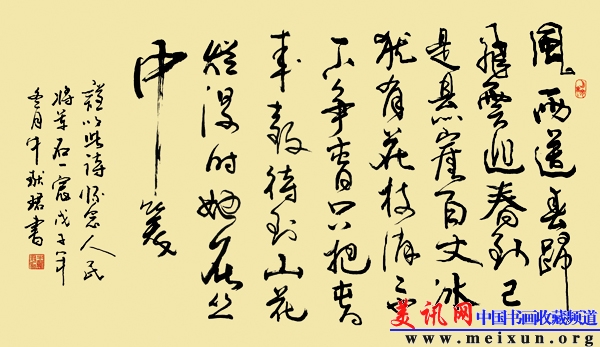 風雨送春歸
飛雪迎春到已
是悬崖百丈冰
犹有花枝俏々也
不争春只把春
来報待到山花
烂漫时她在丛
中笑
謹以此诗怀念人民
将军石一宸戊子年
冬月牛書
美讯网 中国书画收藏频道
www.meixun.org